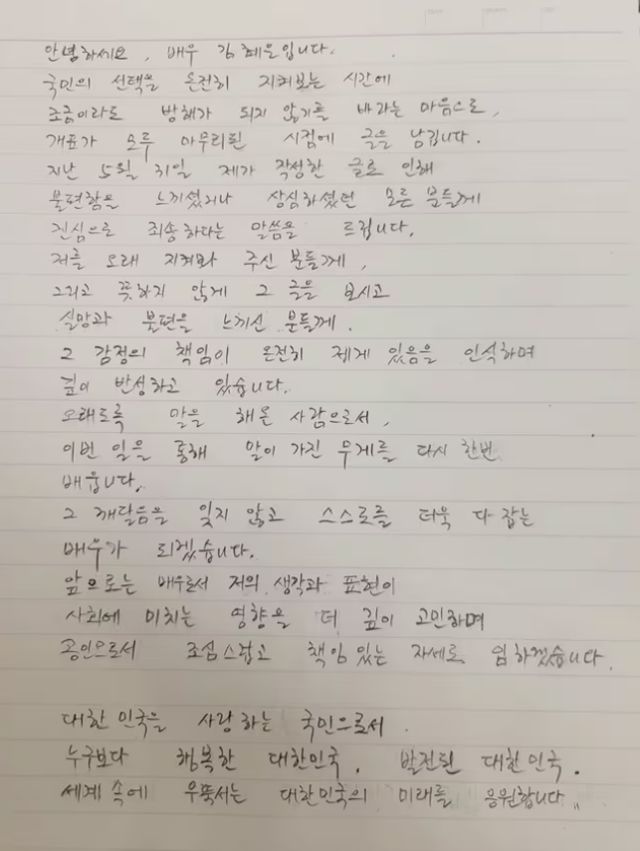 안녕하세요, 배우 김혜은입니다.
국민의 선택을 온전히 지켜보는 시간에
조금이라도 방해가 되지 않기를 바라는 마음으로,
개표가 모두 마무리된 시점에 글을 남깁니다.
지난 5월 31일 제가 작성한 글로 인해
불편함을 느끼셨거나 상심하셨던 모든 분들께
진심으로 죄송하다는 말씀을 드립니다.
저를 오래 지켜봐 주신 분들께,
그리고 뜻하지 않게 그 글을 보시고
실망과 불편을 느끼신 분들께.
그 감정의 책임이 온전히 제게 있음을 인식하며
깊이 반성하고 있습니다.
오래도록 말을 해온 사람으로서,
이번 일을 통해 말이 가진 무게를 다시 한번
배웁니다.
그 깨달음을 잊지 않고 스스로를 더욱 다 잡는
배우가 되겠습니다.
앞으로는 배우로서 저의 생각과 표현이
사회에 미치는 영향을 더 깊이 고민하며
공인으로서 조심스럽고 책임 있는 자세로 임하겠습니다.
대한민국을 사랑하는 국민으로서.
누구보다 행복한 대한민국. 발전된 대한민국.
세계 속에 우뚝서는 대한민국의 미래를 응원합니다..